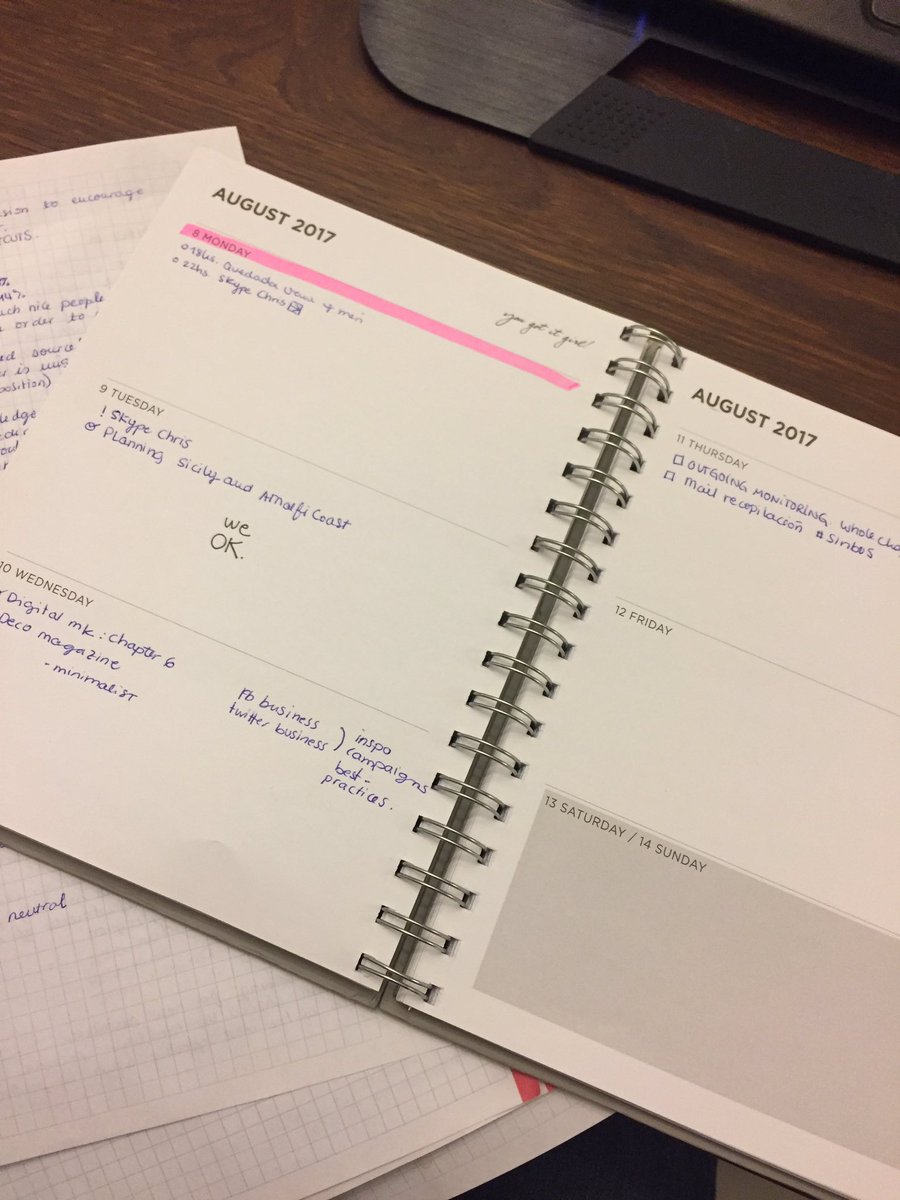 sion to encourage
14%
ch nice people
order to
source'
position)
neutral
AUGUST 2017
8 MONDAY
18hs. Quedada
22hs. Skype Chris
you got it girl!
9 TUESDAY
! Skype Chris
Planning Sicily and Amalfi Coast
we
OK.
10 WEDNESDAY
Digital mk: Chapter 6
Deco magazine
- minimalist
Fb business
twitter business ) inspo
campaigns
best-
practices.
AUGUST 2017
11 THURSDAY
OUTGOING MONITORING. Whole
Mail recopilación #sinbos
12 FRIDAY
13 SATURDAY / 14 SUNDAY